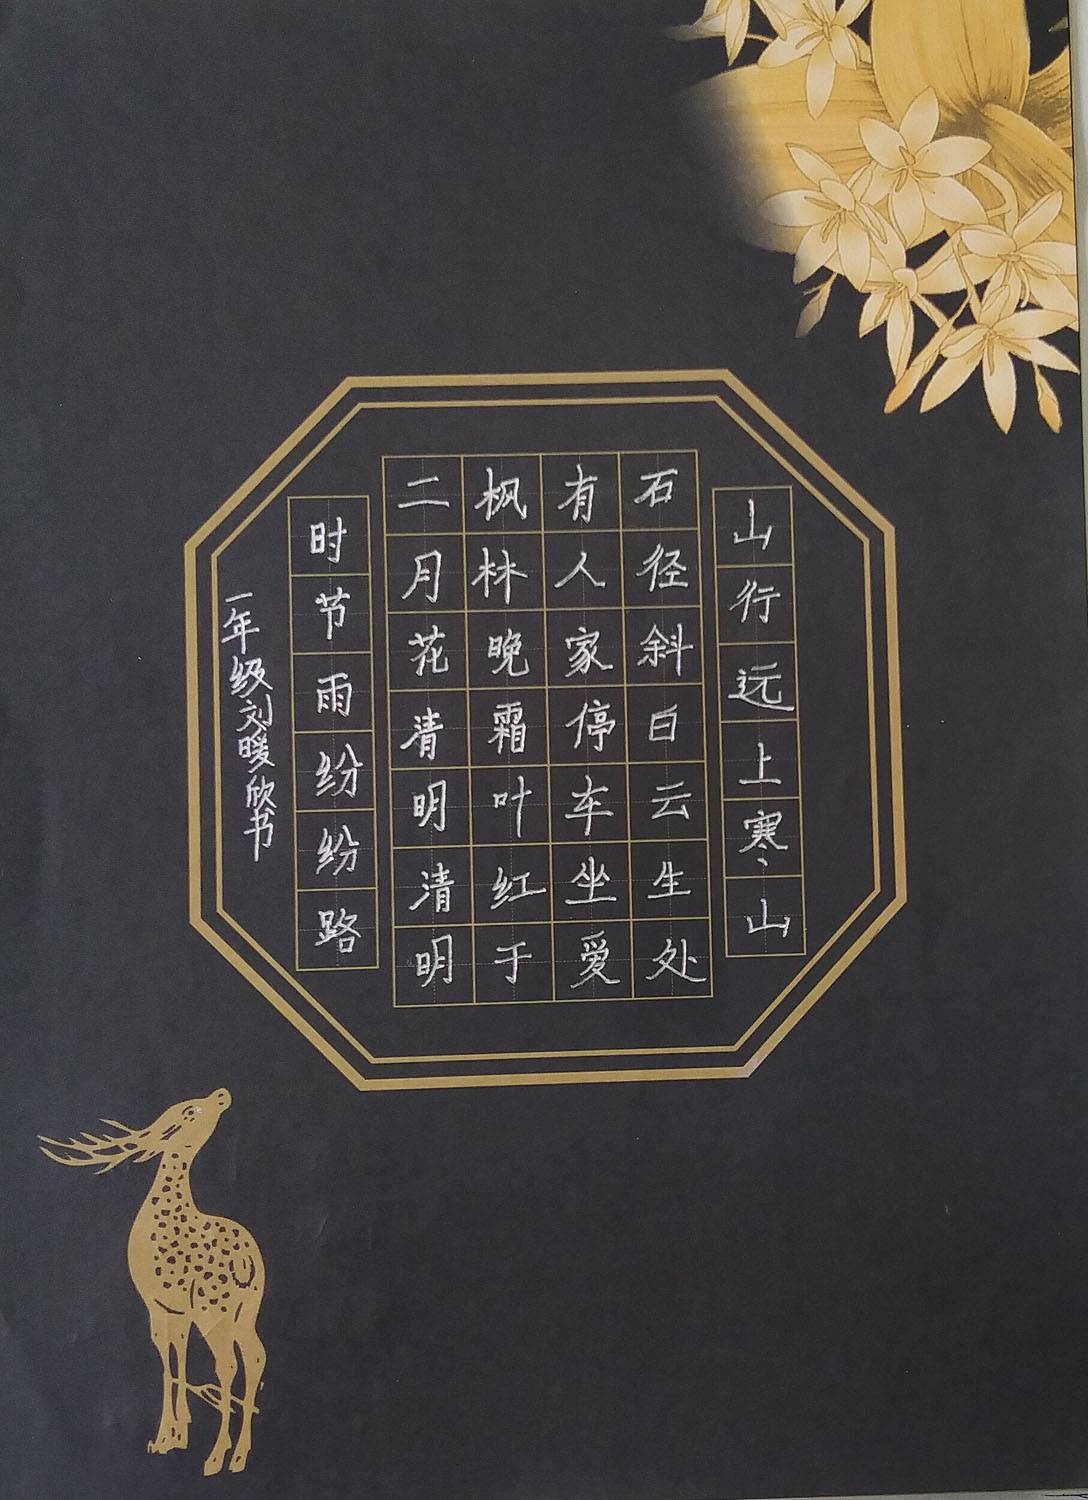 山行远上寒山
石径斜白云生处
有人家停车坐爱
枫林晚霜叶红于
二月花清明清明
时节雨纷纷路
一年级刘暖欣书